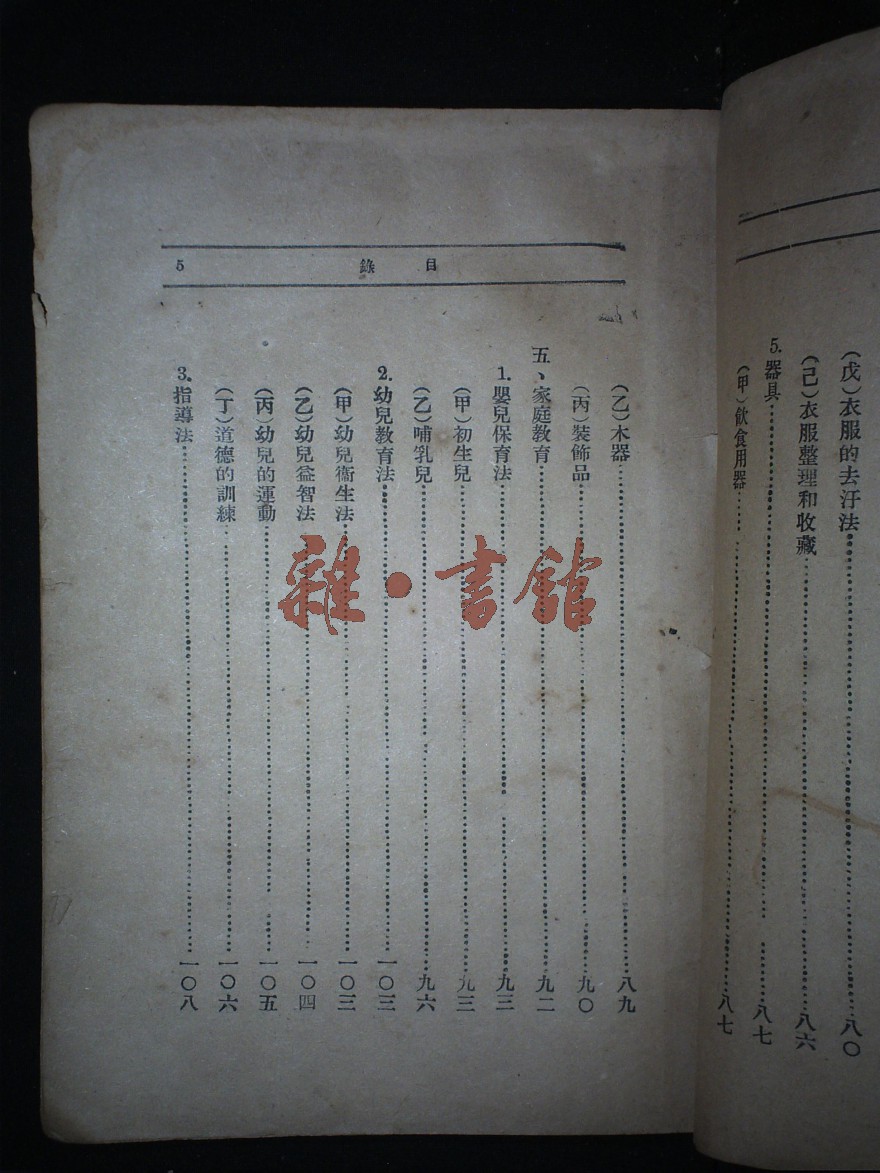 (戊)衣服的去汙法 八〇
(己)衣服整理和收藏 八六
5.器具 八七
(甲)飲食用器 八七
目錄 5
(乙)木器 八九
(丙)裝飾品 九〇
五、家庭教育 九二
1.嬰兒保育法 九三
(甲)初生兒 九三
(乙)哺乳兒 九六
2.幼兒教育法 一〇三
(甲)幼兒衞生法 一〇三
(乙)幼兒益智法 一〇四
(丙)幼兒的運動 一〇五
(丁)道德的訓練 一〇六
3.指導法 一〇八
雜·書館